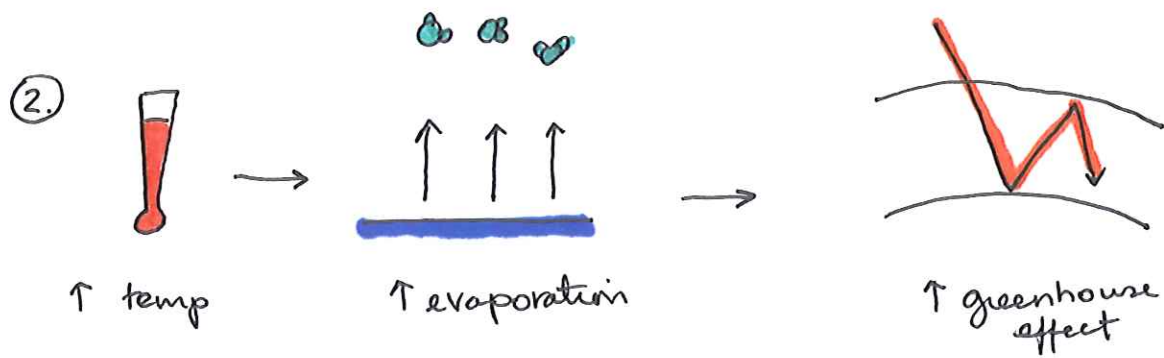 2.
↑ temp
↑ evaporation
↑ greenhouse
effect